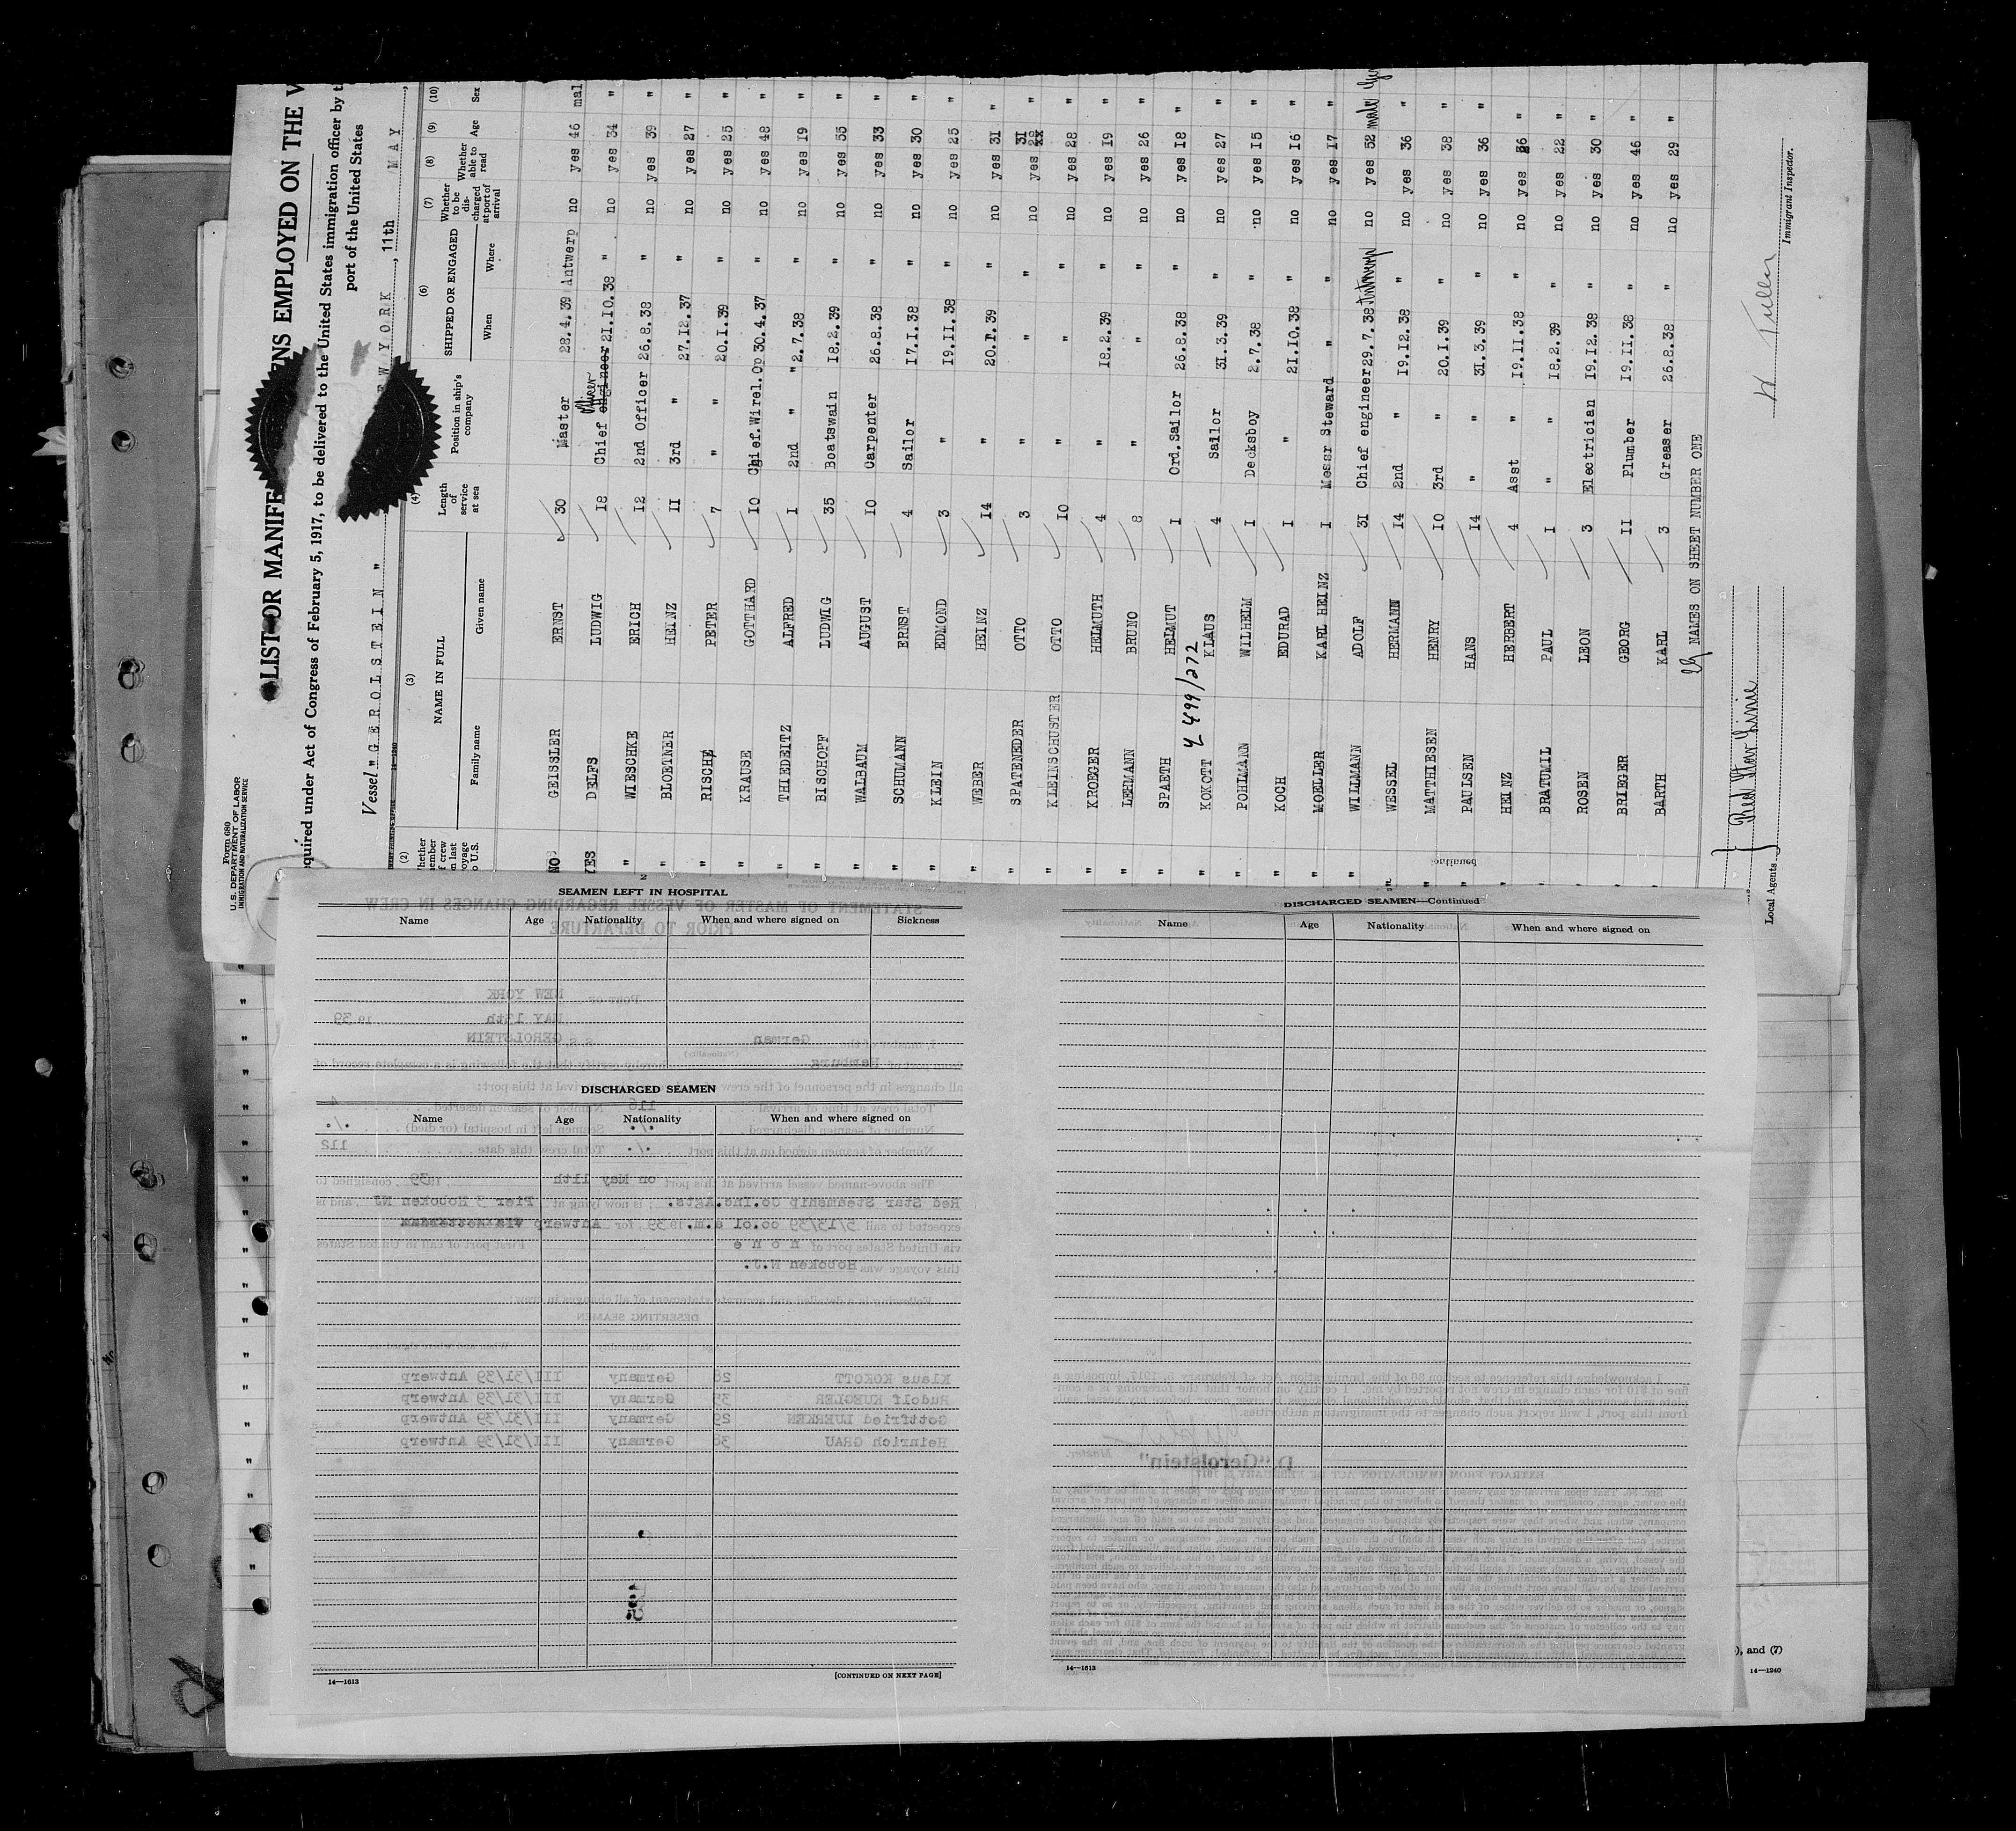 Form 680
U.S. DEPARTMENT OF LABOR
IMMIGRATION AND NATURALIZATION SERVICE
LIST OR MANIFE
ENS EMPLOYED ON THE V
equired under Act of Congress of February 5, 1917, to be delivered to the United States immigration officer by t
port of the United States
Vessel "GEROLSTEIN"
EW YORK, 11th MAY
14—1240
(2) (3) (4) (6) (7) (8) (9) (10)
NAME IN FULL
Family name Given name
Length of service at sea
Position in ship's company
SHIPPED OR ENGAGED
When Where
Whether to be discharged at port of arrival
Whether able to read
Age
Sex
NO GEISSLER ERNST 30 Master 28.4.39 Antwerp no yes 46 mal
YES DELFS LUDWIG 18 Chief engineer 21.10.38 " no yes 34 "
" WIESCHKE ERICH 12 2nd Officer 26.8.38 " no yes 39 "
" BLOETNER HEINZ II 3rd " 27.12.37 " no yes 27 "
" RISCHE PETER 7 " 20.1.39 " no yes 25 "
" KRAUSE GOTTHARD IO Chief.Wirel.Op 30.4.37 " no yes 48 "
" THIEDEITZ ALFRED I 2nd " " 2.7.38 " no yes 19 "
" BISCHOFF LUDWIG 35 Boatswain 18.2.39 " no yes 55 "
" WALBAUM AUGUST IO Carpenter 26.8.38 " no yes 33 "
" SCHUMANN ERNST 4 Sailor 17.1.38 " no yes 30 "
" KLEIN EDMOND 3 " 19.11.38 " no yes 25 "
" WEBER HEINZ 14 " 20.1.39 " no yes 31 "
" SPATENEDER OTTO 3 " " " no yes 31 "
" KLEINSCHUSTER OTTO IO " " " no yes 28 "
" KROEGER HELMUTH 4 " 18.2.39 " no yes 19 "
" LEHMANN BRUNO 8 " " " no yes 26 "
" SPAETH HELMUT I Ord.Sailor 26.8.38 " no yes 18 "
499/272
" KOKOTT KLAUS 4 Sailor 31.3.39 " no yes 27 "
" POHLMANN WILHELM I Decksboy 2.7.38 " no yes 15 "
" KOCH EDURAD I " 21.10.38 " no yes 16 "
" MOELLER KARL HEINZ I Messr Steward " " no yes 17 "
" WILLMANN ADOLF 31 Chief engineer 29.7.38 Antwerp no yes 52 male
" WESSEL HERMANN 14 2nd " 19.12.38 " no yes 36 "
" MATTHIESEN HENRY IO 3rd " 20.1.39 " no yes 38 "
" PAULSEN HANS 14 " " 31.3.39 " no yes 36 "
" HEINZ HERBERT 4 Asst " 19.11.38 " no yes 26 "
" BRATUMIL PAUL I " " 18.2.39 " no yes 22 "
" ROSEN LEON 3 Electrician 19.12.38 " no yes 30 "
" BRIEGER GEORG II Plumber 19.11.38 " no yes 46 "
" BARTH KARL 3 Greaser 26.8.38 " no yes 29 "
NAMES ON SHEET NUMBER ONE
Red Star Linie
Local Agents
Immigrant Inspector.
SEAMEN LEFT IN HOSPITAL
Name Age Nationality When and where signed on Sickness
DISCHARGED SEAMEN
Name Age Nationality When and where signed on
14—1613
[CONTINUED ON NEXT PAGE]
DISCHARGED SEAMEN—Continued
Name Age Nationality When and where signed on
14—1613
STATEMENT OF MASTER OF VESSEL REGARDING CHANGES IN CREW
PRIOR TO DEPARTURE
PORT OF NEW YORK
MAY 13th 1939
German S.S. GEROLSTEIN
Hamburg
Total crew at time of arrival 116 Number of seamen deserted 4
Number of seamen discharged ./. Seamen left in hospital (or died) ./.
Number of seamen signed on at this port ./. Total crew this date 112
The above-named vessel arrived at this port on May 11th, 1939, consigned to
Red Star Steamship co.Inc.Agts.; is now lying at Pier 3 Hoboken NJ, and is
expected to sail 5/13/39 oo.o1 a.m. 1939, for Antwerp via Rotterdam
via United States port of none First port of call in United States
this voyage was Hoboken N.J.
Following is a detailed and accurate statement of all changes in crew:
DESERTING SEAMEN
Klaus KOKOTT 28 Germany III/31/39 Antwerp
Rudolf KUEGLER 35 Germany III/31/39 Antwerp
Gottfried LUERKEN 29 Germany III/31/39 Antwerp
Heinrich GRAU 38 Germany III/31/39 Antwerp
D. "Gerolstein"
Master.
EXTRACT FROM IMMIGRATION ACT OF FEBRUARY 5, 1917
), and (7)
14—1240